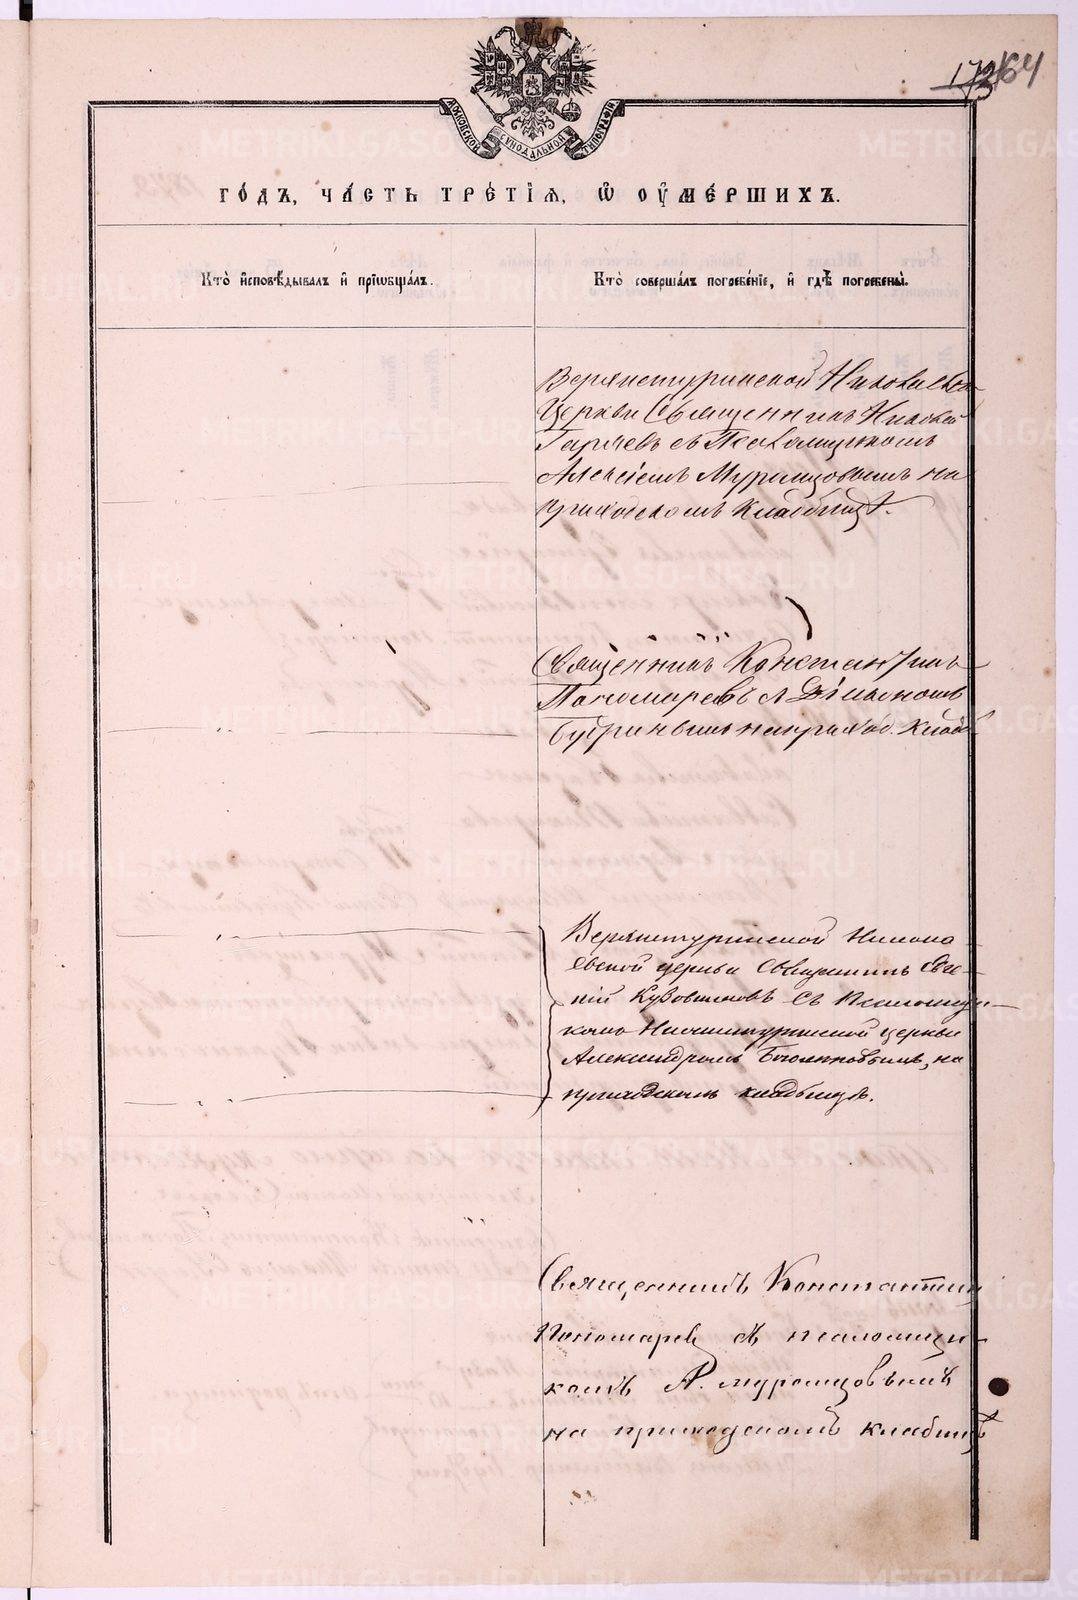 164
МОСКОВСКОЙ СѴНОДАЛЬНОЙ ТИПОГРАФІИ
ГО́ДЪ, ЧА́СТЬ ТРЕ́ТІѦ, Ѡ҆ ОУ҆МЕ́РШИХЪ.
Кто̀ и҆сповѣ́дывалъ и҆ прїѡбща́лъ.
Кто̀ соверша́лъ погребе́нїе, и҆ гдѣ̀ погребены̀.
Верхнетуринской Николаевской
Церкви Священникъ Николай
Гаряевъ съ Псаломщикомъ
Алексѣемъ Муромцовымъ на
приходскомъ кладбищѣ.
Священникъ Константинъ
Пономаревъ съ Діакономъ
на приход. кладб.
Верхнетуринской Никола-
евской церкви Священникъ Евге-
ній Кузовниковъ съ Псаломщи-
комъ Нижнетуринской церкви
Александромъ на
приходскомъ кладбищѣ.
Священникъ Константинъ
Пономаревъ съ псаломщи-
комъ А. Муромцовымъ
на приходскомъ кладбищѣ
METRIKI.GASO-URAL.RU